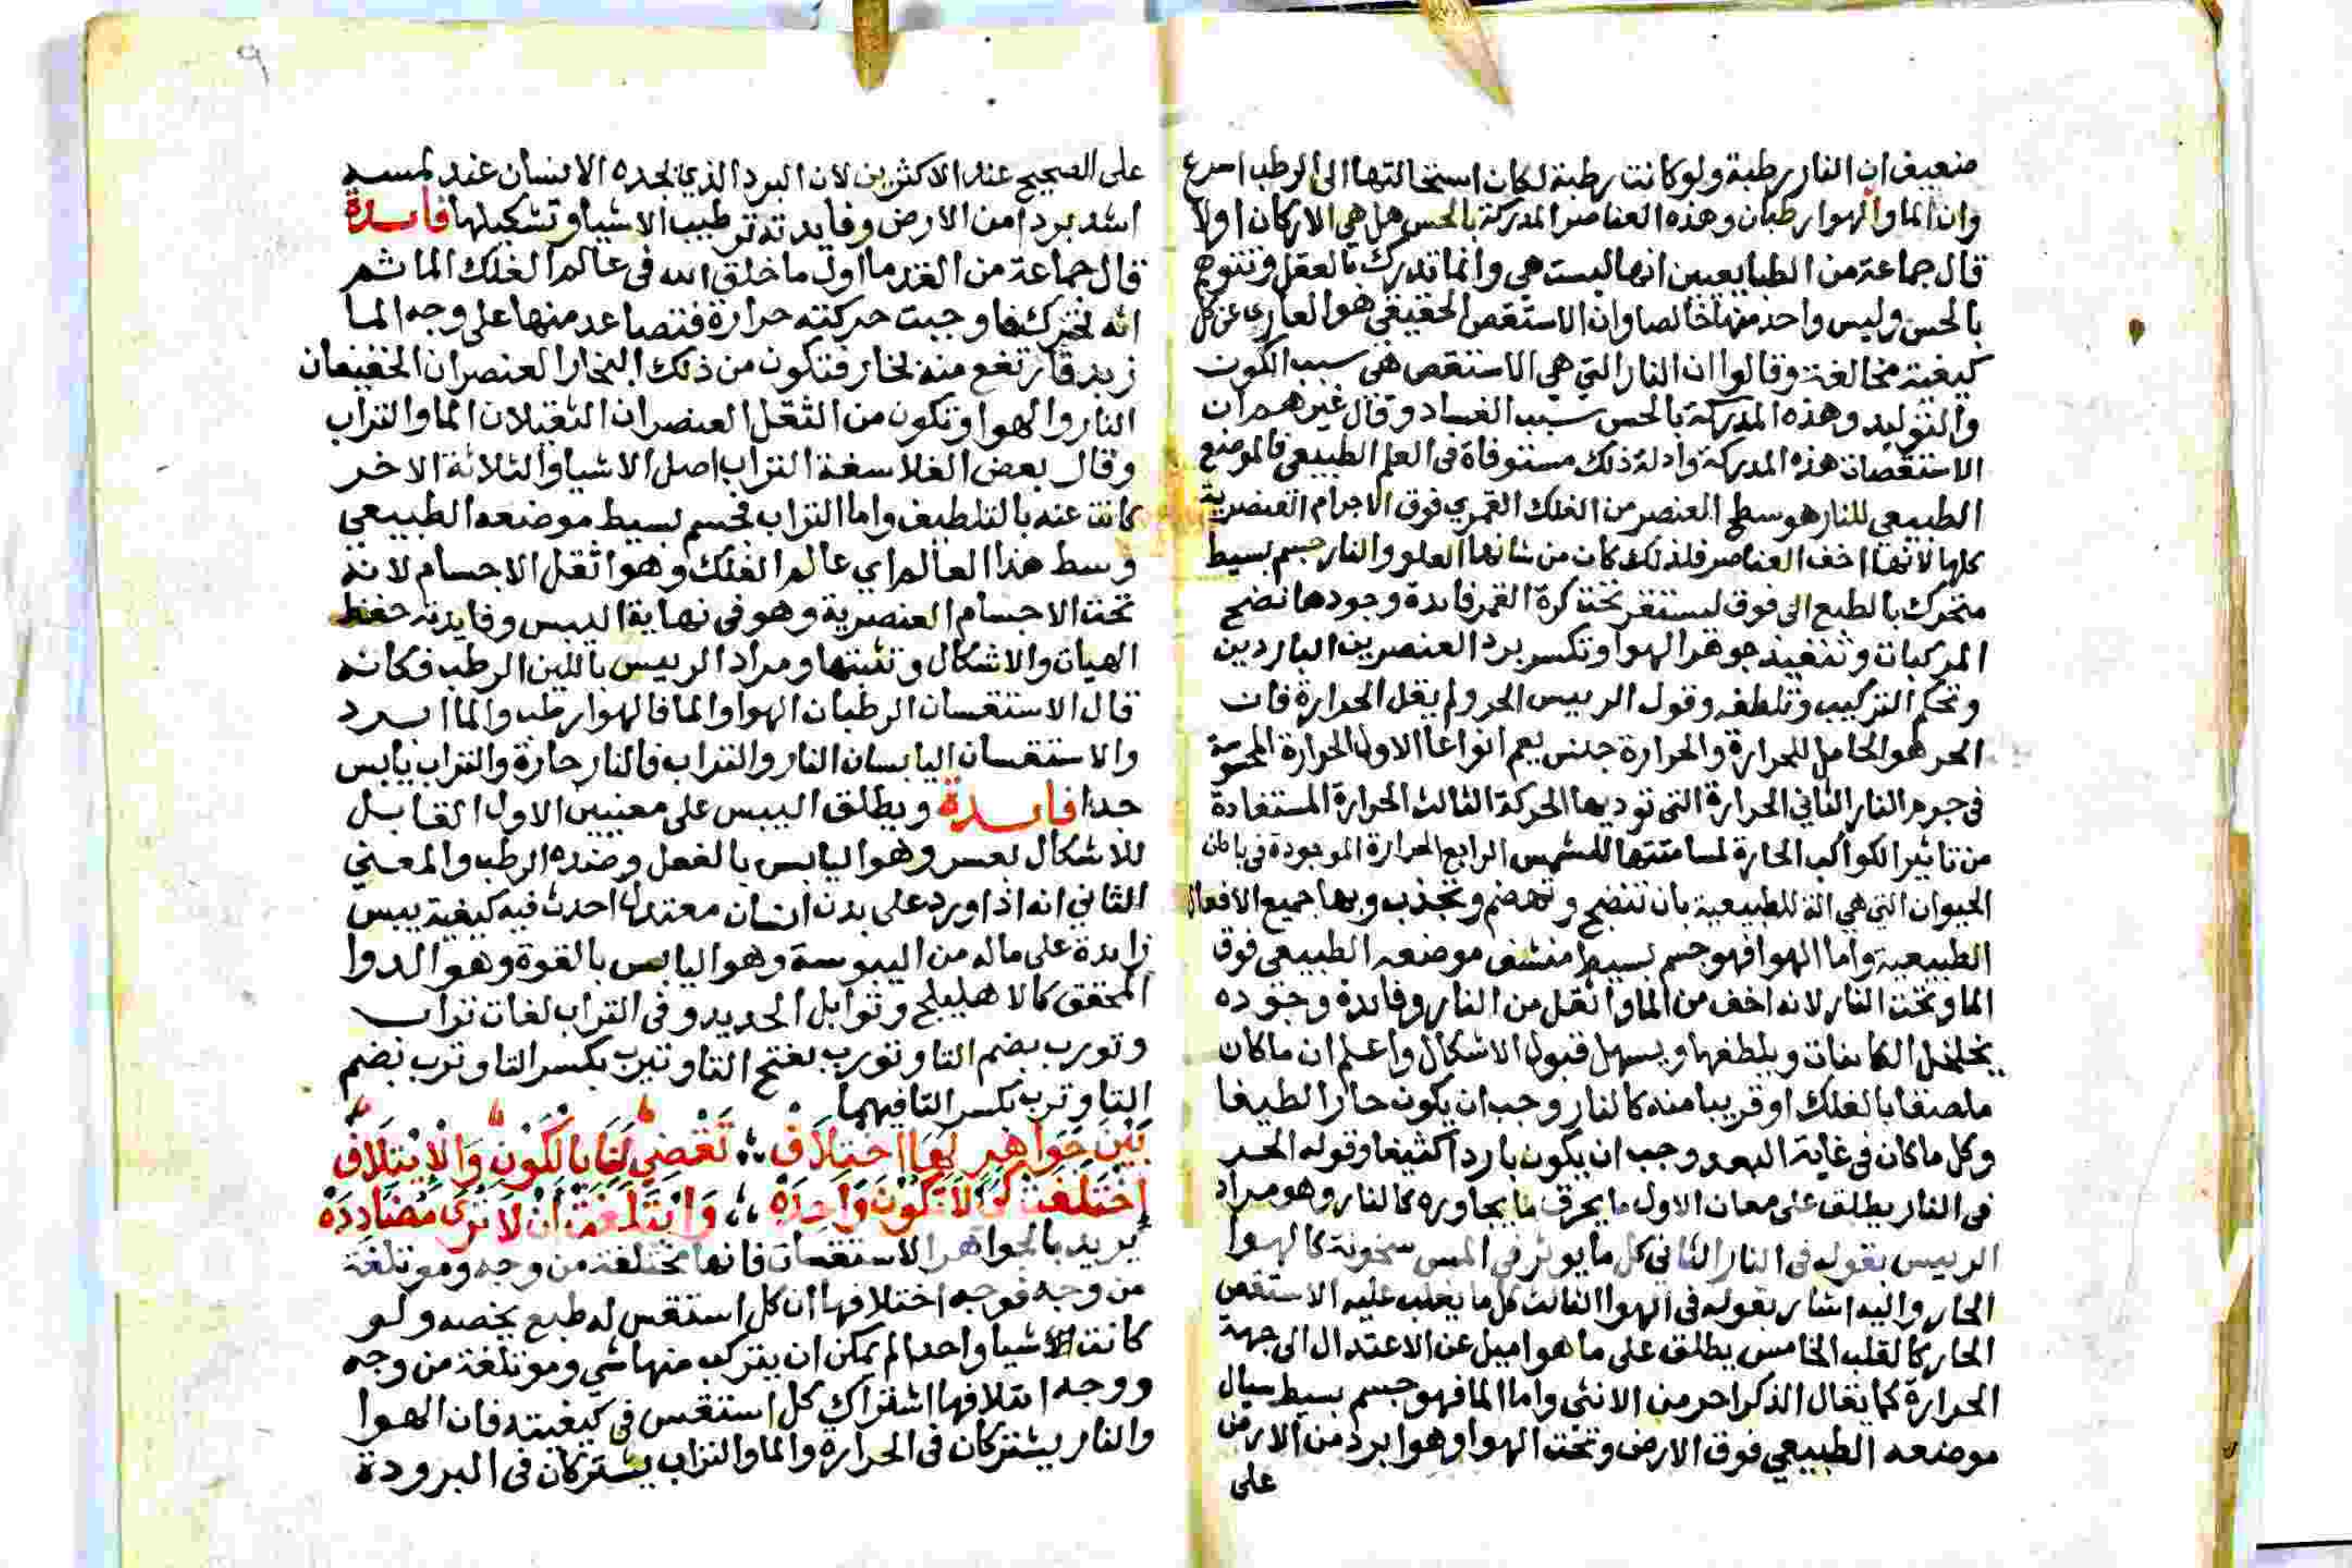 ضعيف ان النار رطبة ولو كانت رطبة لكان استحالتها الى الرطب اسرع
وان الما والهوا رطبان وهذه العناصر المدركة بالحس هل هي الاركان اولا
قال جماعة من الطبايعيين انها ليست هي وانما تدرك بالعقل وتتوهم
بالحس وليس واحد منها خالصا وان الاستقص الحقيقي هو العاري عن كل
كيفية مخالفة وقالوا ان النار التي هي الاستقص هي سبب الكون
والتوليد وهذه المدركة بالحس سبب الفساد وقال غيرهم ان
الاستقصات هذه المدركة وادلة ذلك مستوفاة في العلم الطبيعي فالموضع
الطبيعي للنار هو سطح العنصر من الفلك القمري فوق الاجرام العنصرية
كلها لانها اخف العناصر فلذلك كان من شانها العلو والنار جسم بسيط
متحرك بالطبع الى فوق ليستقر تحت كرة القمر فايدة وجودها نضج
المركبات وتنفيذ جوهر الهوا وتكسر برد العنصرين الباردين
وتحكم التركيب وتلطفه وقول الرييس الحر ولم يقل الحرارة فان
الحر هو الحامل للحرارة والحرارة جنس يعم انواعا الاول الحرارة المحسوسة
في جرم النار الثاني الحرارة التي توديها الحركة الثالث الحرارة المستفادة
من تاثير الكواكب الحارة لمسامتتها للشمس الرابع الحرارة الموجودة في باطن
الحيوان التي هي الة للطبيعية بان تنضج وتهضم وتجذب وبها جميع الافعال
الطبيعية واما الهوا فهو جسم بسيط منشف موضعه الطبيعي فوق
الما وتحت النار لانه اخف من الما واثقل من النار وفايدة وجوده
يخلخل الكاينات ويلطفها ويسهل قبول الاشكال واعلم ان ماكان
ملصقا بالفلك او قريبا منه كالنار وجب ان يكون حارا لطيفا
وكل ماكان في غاية البعد وجب ان يكون باردا كثيفا وقوله الحر
في النار يطلق على معان الاول ما يحرق ما يجاوره كالنار وهو مراد
الرييس بقوله في النار الثاني كل ما يوثر في المس سخونة كالهوا
الحار واليه اشار بقوله في الهوا الثالث كل ما يغلب عليه الاستقص
الحار كالقلب الخامس يطلق على ما هو اميل عن الاعتدال الى جهة
الحرارة كما يقال الذكر احر من الانثى واما الما فهو جسم بسيط سيال
موضعه الطبيعي فوق الارض وتحت الهوا وهو ابرد من الارض
على
٩
على الصحيح عند الاكثرين لان البرد الذي يجده الانسان عند لمسه
اشد بردا من الارض وفايدته ترطيب الاشيا وتشكيلها فايدة
قال جماعة من القدما اول ما خلق الله في عالم الفلك الما ثم
انه تحرك فاوجبت حركته حرارة فتصاعد منها على وجه الما
زبد فارتفع منه بخار فتكون من ذلك البخار العنصران الخفيفان
النار والهوا وتكون من الثقل العنصران الثقيلان الما والتراب
وقال بعض الفلاسفة التراب اصل الاشيا والثلاثة الاخر
كانت عنه بالتلطيف واما التراب فجسم بسيط موضعه الطبيعي
وسط هذا العالم اي عالم الفلك وهو اثقل الاجسام لانه
تحت الاجسام العنصرية وهو في نهاية اليبس وفايدته حفظ
الهيات والاشكال وتثبتها ومراد الرييس باللين الرطب فكانه
قال الاستقسان الرطبان الهوا والما فالهوا رطب والما ابرد
والاستقسان اليابسان النار والتراب فالنار حارة والتراب يابس
جدا فايدة ويطلق اليبس على معنيين الاول القابل
للاشكال بعسر وهو اليابس بالفعل وضده الرطب والمعني
الثاني انه اذا ورد على بدن انسان معتدل احدث فيه كيفية يبس
زايدة على ماله من اليبوسة وهو اليابس بالقوة وهو الدوا
المحقق كالاهليلج وتوابل الحديد وفي التراب لغات تراب
وتورب بضم التا وتورب بفتح التا وتيرب بكسر التا وترب بضم
التا وترب بكسر التا فيهما
بَيْنَ جَوَاهِرٍ لَهَا اخْتِلَافُ ؛ تَقْضِي لَنَا بِالْكَوْنِ وَالْاِيتِلَافُ
اِخْتَلَفَتْ كَي لَا تَكُونَ وَاحِدَهْ ؛ وَايْتَلَفَتْ اَنْ لَا تُرَى مُضَادِدَهْ
يريد بالجواهر الاستقسات فانها مختلفة من وجه وموتلفة
من وجه فوجه اختلافها ان كل استقس له طبع يخصه ولو
كانت الاشيا واحدا لم يمكن ان يتركب منها شي وموتلفة من وجه
ووجه ايتلافها اشتراك كل استقس في كيفيته فان الهوا
والنار يشتركان في الحرارة والما والتراب يشتركان في البرودة